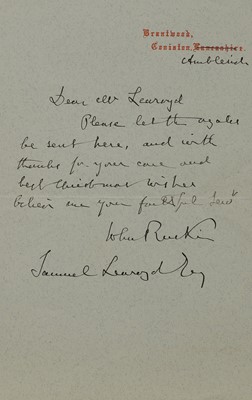 Brantwood,
Coniston, Lancashire.
Ambleside
Dear Mr Learoyd
Please let the agates
be sent here, and with
thanks for your care and
best Christmas wishes
believe me your faithful Servt
John Ruskin
Samuel Learoyd Esq